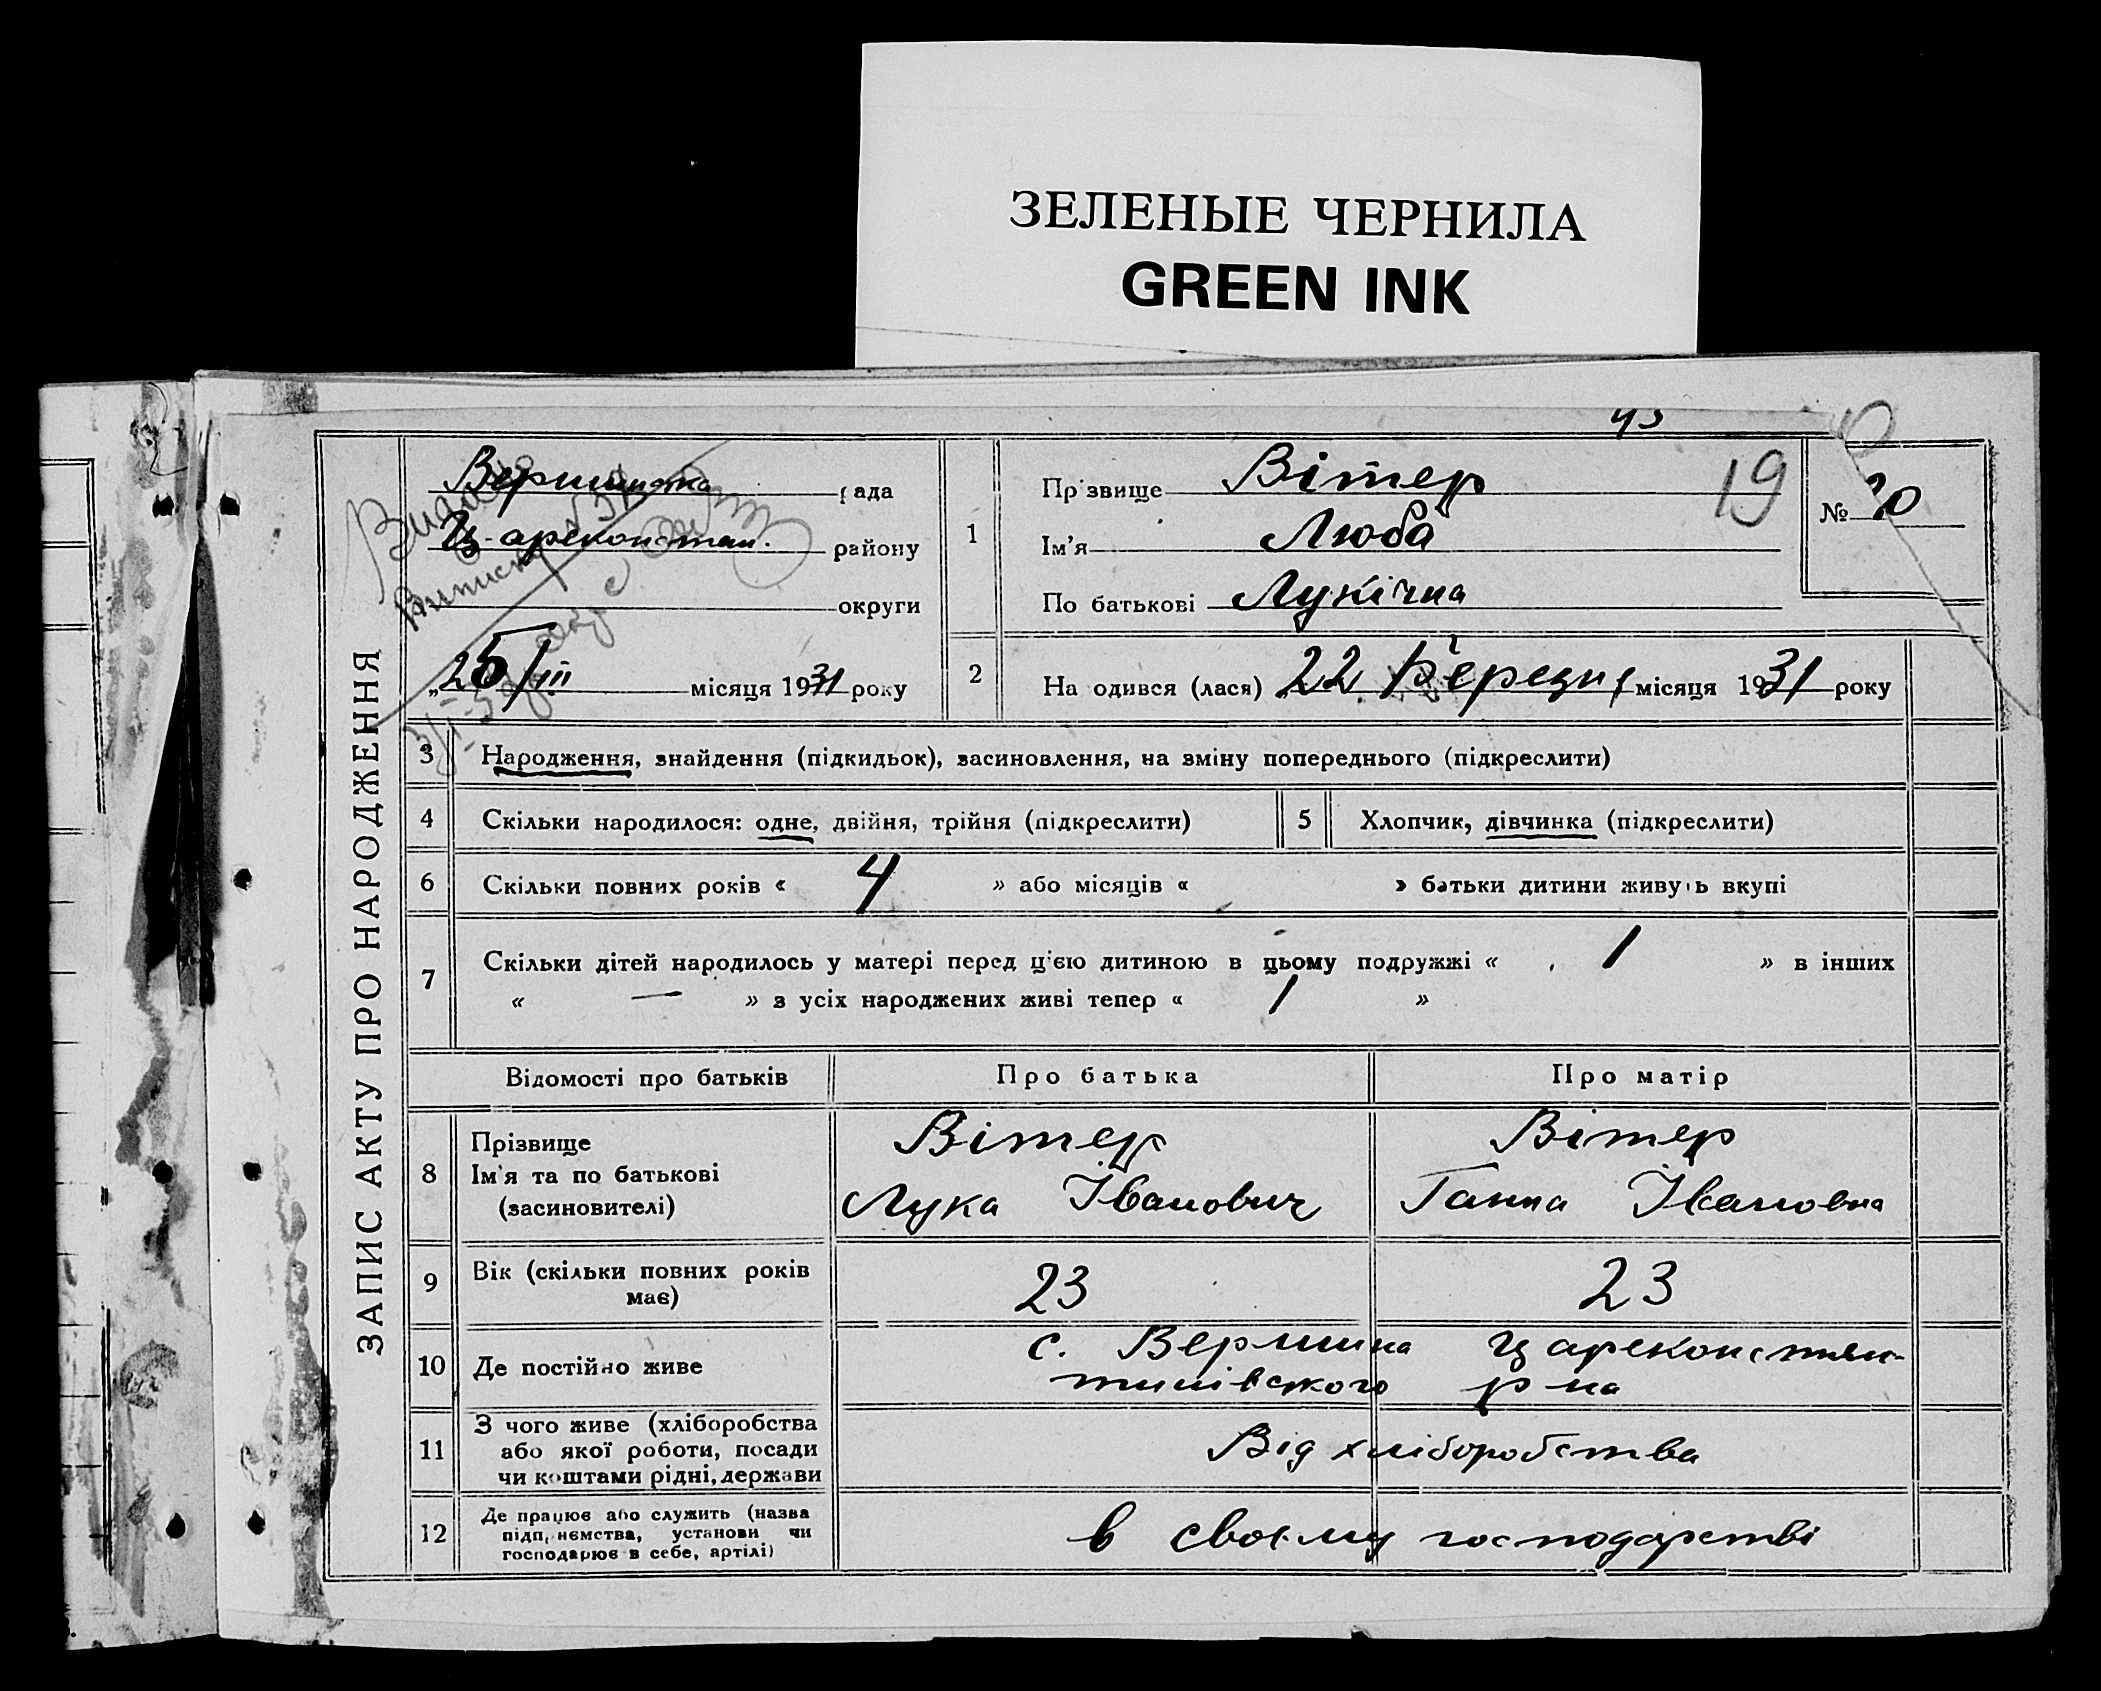 ЗЕЛЕНЫЕ ЧЕРНИЛА
GREEN INK
43
ЗАПИС АКТУ ПРО НАРОДЖЕННЯ
рада
Ц-ареконстан. району
округи
„25/III місяця 1931 року
1
Прізвище Вітер
Ім’я Люба
По батькові Лукічна
19
№ 20
2 На одився (лася) 22 Березня місяця 1931 року
3 Народження, знайдення (підкидьок), засиновлення, на зміну попереднього (підкреслити)
4 Скільки народилося: одне, двійня, трійня (підкреслити)
5 Хлопчик, дівчинка (підкреслити)
6 Скільки повних років « 4 » або місяців « » батьки дитини живуть вкупі
7 Скільки дітей народилось у матері перед ц’єю дитиною в цьому подружжі « 1 » в інших
« — » з усіх народжених живі тепер « 1 »
Відомості про батьків Про батька Про матір
8 Прізвище
Ім’я та по батькові
(засиновителі)
Вітер
Лука Іванович
Вітер
Ганна Івановна
9 Вік (скільки повних років
має)
23 23
10 Де постійно живе
с. Вершина Цареконстян-
тинівського р на
11 З чого живе (хліборобства
або якої роботи, посади
чи коштами рідні, держави
Від хліборобства
12 Де працює або служить (назва
підприємства, установи чи
господарює в себе, артілі)
в своєму господарстві